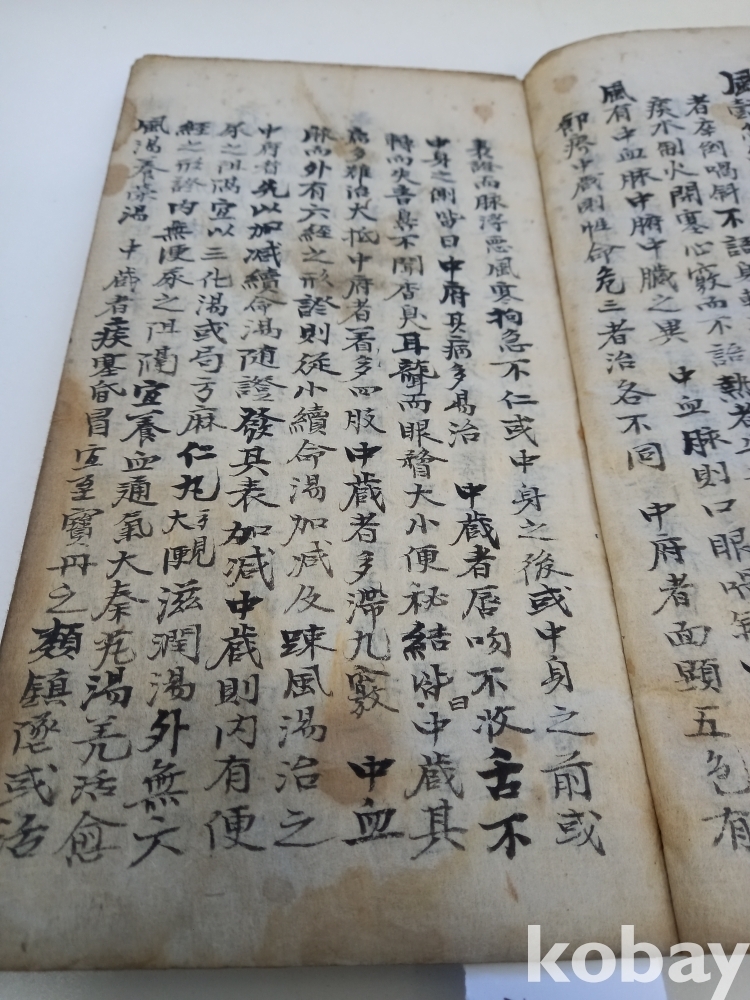 者卒倒喎斜不語
疾水制火閉塞心竅而不語熱者
風有中血脉中腑中臟之異 中血脉則口眼喎斜
中府者面顯五色有
卽疼中臟則性命危三者治各不同
表證而脉浮惡風寒拘急不仁或中身之後或中身之前或
中身之側皆曰中府其病多易治 中臟者唇吻不收舌不
轉而失音鼻不聞香臭耳聾而眼瞀大小便秘結皆曰中臟其
病多難治大抵中府者着多四肢中臟者多滯九竅 中血
脉而外有六經之形證則從小續命湯加减及踈風湯治之
中府者先以加减續命湯隨證發其表加减中臟則內有便
尿之阻隔宜以三化湯或局方麻仁丸大便滋潤湯外無六
經之形證內無便尿之阻隔宜養血通氣大秦艽湯羌活愈
風湯養榮湯 中臟者痰塞昏冒宜至寶丹之類鎮墜或活
kobay